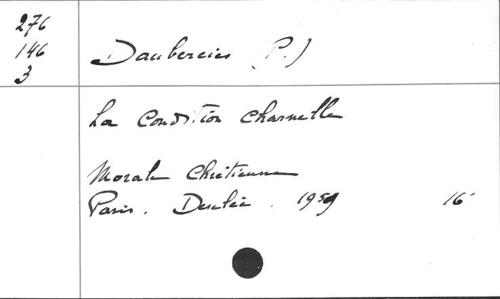 276
146
3
Daubercies (P.)
La Condition Charnelle
Morale Chrétienne
Paris. Desclée. 1959 16